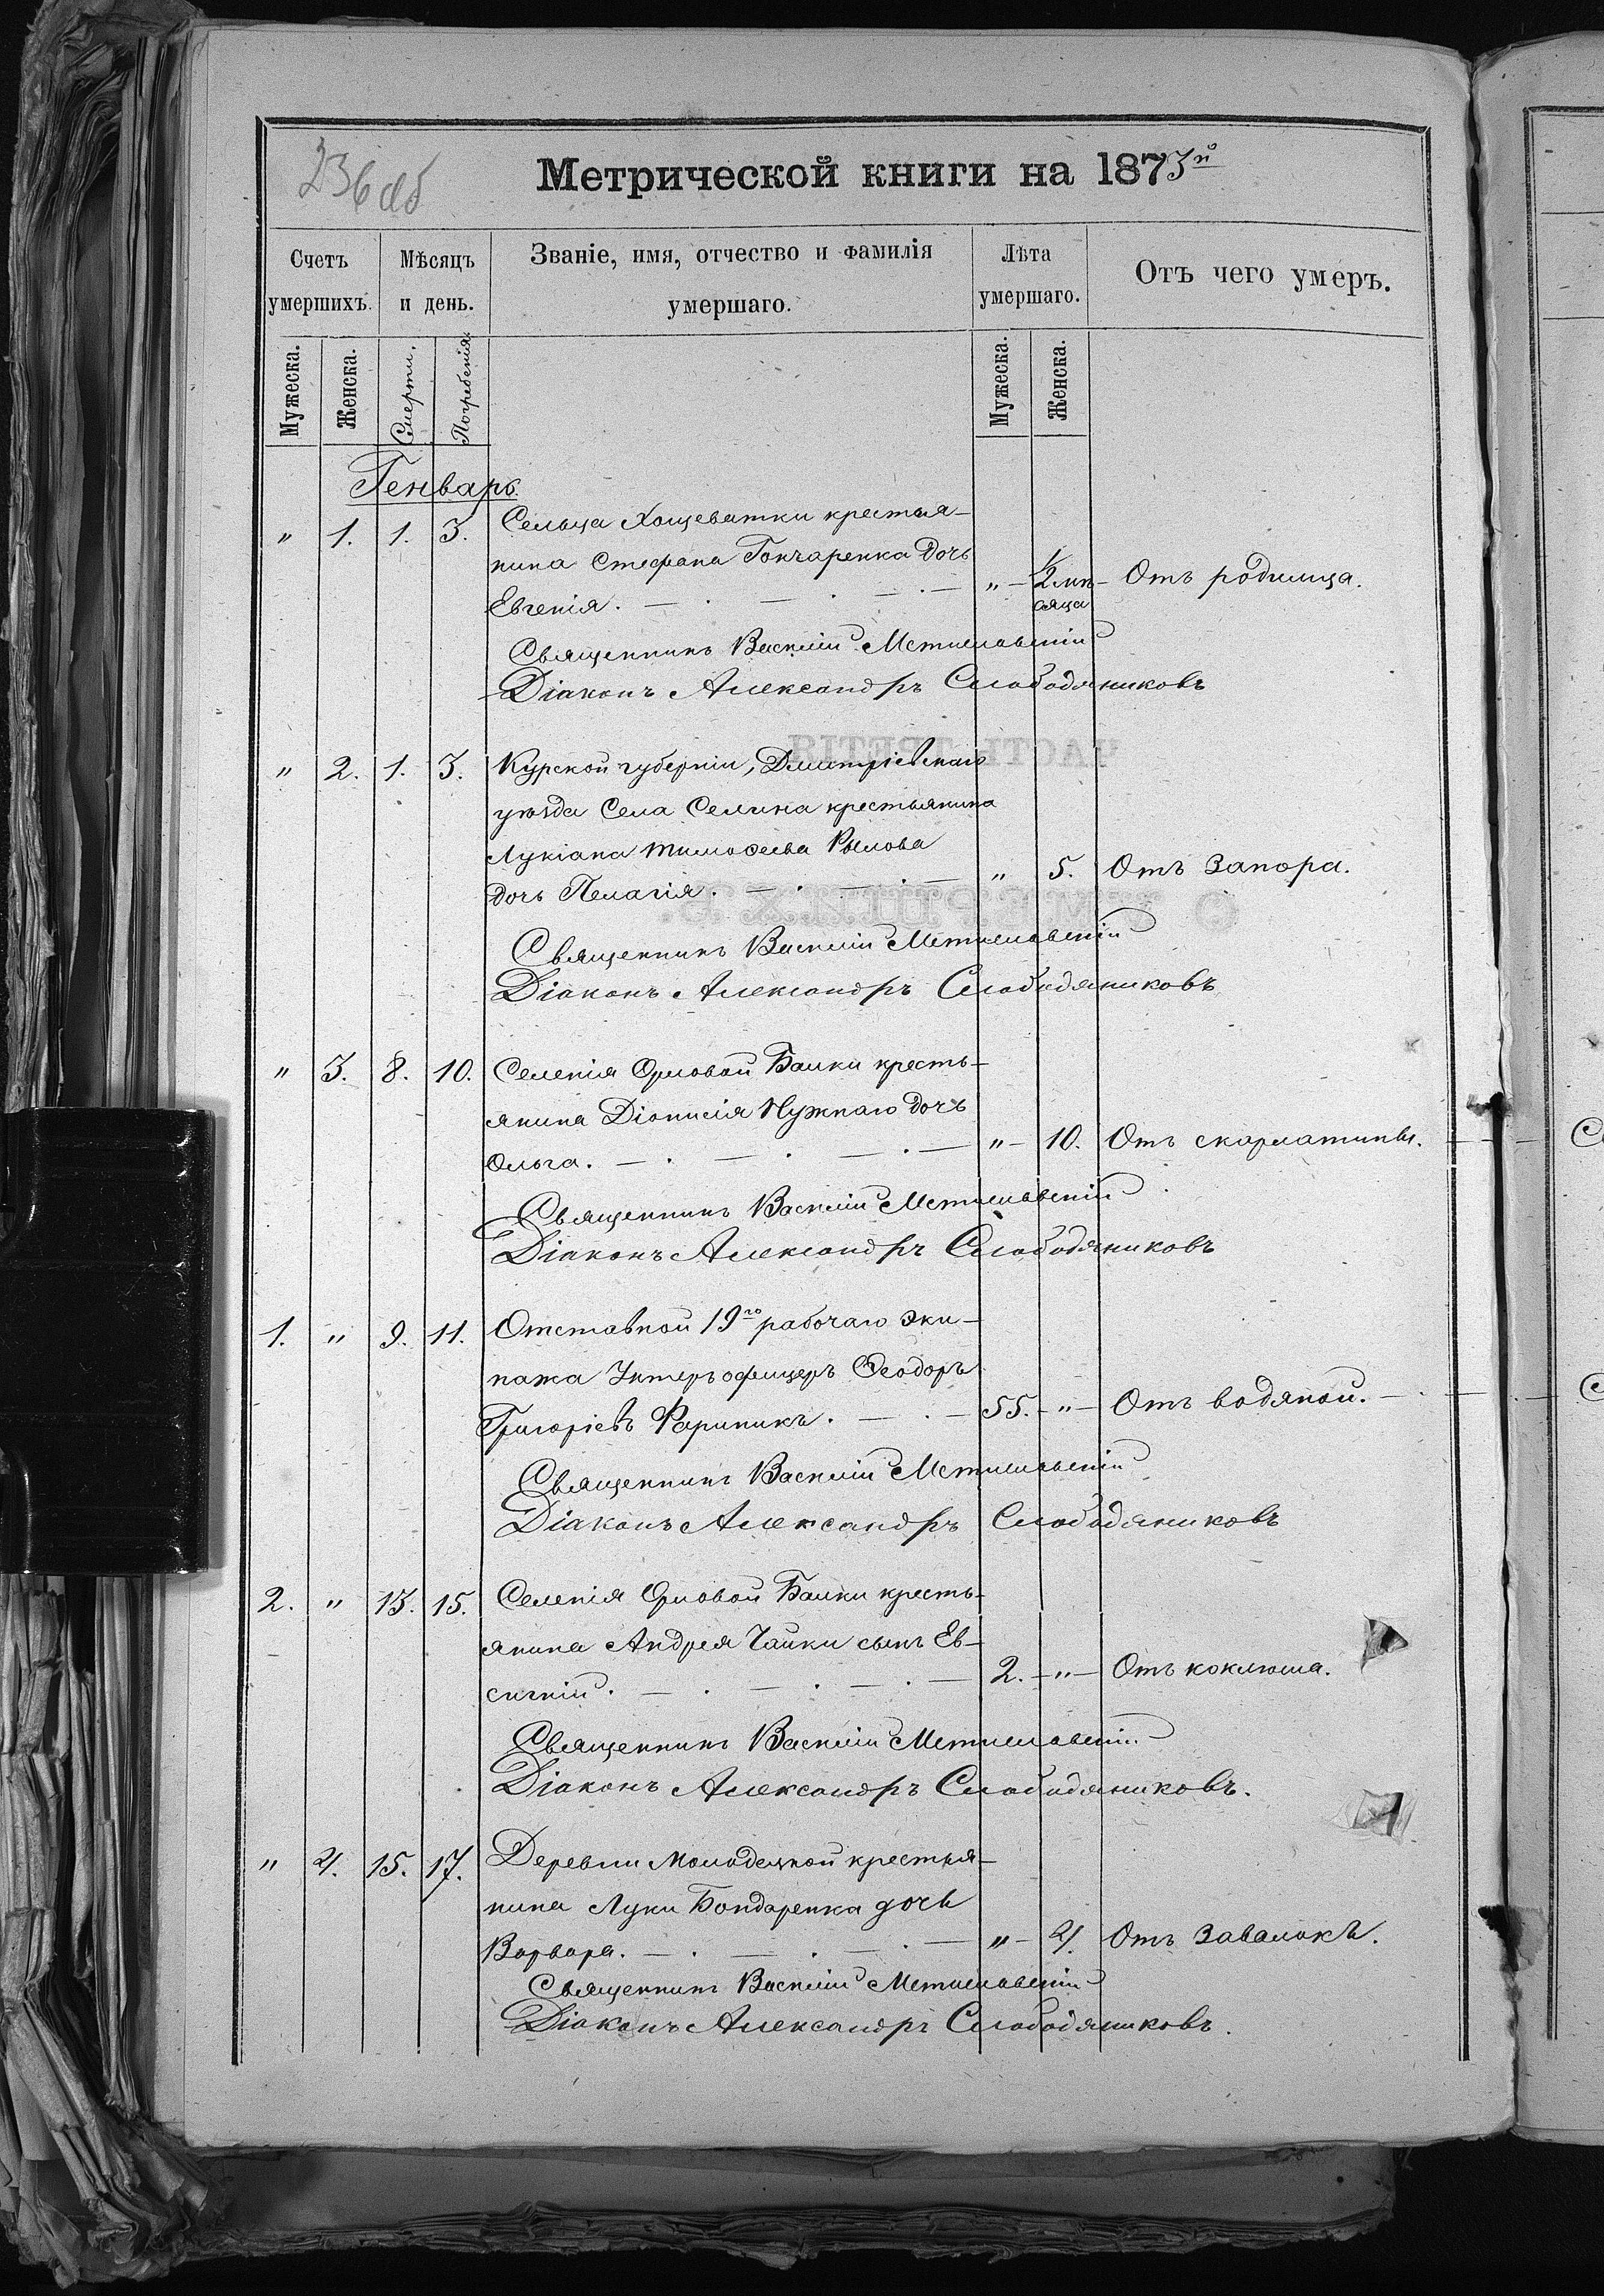 236 об
Метрической книги на 1873й
Счетъ умершихъ.
Мѣсяцъ и день.
Званіе, имя, отчество и фамилія умершаго.
Лѣта умершаго.
Отъ чего умеръ.
Мужеска. Женска. Смерти. Погребенія. Мужеска. Женска.
Генварь
" 1. 1. 3. Сельца Хощеватки крестья-
нина Стефана Гончаренка дочь
Евгенія. " 1/2 мѣ- Отъ родимца.
сяца
Священникъ Василій Мстиславскій
Діаконъ Александръ Слободяниковъ
" 2. 1. 3. Курской губерніи, Дмитріевскаго
уѣзда Села Селина крестьянина
Лукіана Тимоѳеева Рылова
дочь Пелагія. " 5. Отъ запора.
Священникъ Василій Мстиславскій
Діаконъ Александръ Слободяниковъ
" 3. 8. 10. Селенія Орловой Балки кресть-
янина Діонисія Нужнаго дочь
Ольга. " 10. Отъ скарлатины.
Священникъ Василій Мстиславскій
Діаконъ Александръ Слободяниковъ
1. " 9. 11. Отставной 19го рабочаго эки-
пажа Унтеръ офицеръ Ѳеодоръ
Григоріевъ 55. " Отъ водяной.
Священникъ Василій Мстиславскій
Діаконъ Александръ Слободяниковъ
2. " 13. 15. Селенія Орловой Балки кресть-
янина Андрея Чайки сынъ Ев-
сигній. 2. " Отъ коклюша.
Священникъ Василій Мстиславскій
Діаконъ Александръ Слободяниковъ.
" 4. 15. 17. Деревни Молодецкой крестья-
нина Луки Бондаренка дочь
Варвара. " 4. Отъ завалокъ.
Священникъ Василій Мстиславскій
Діаконъ Александръ Слободяниковъ.